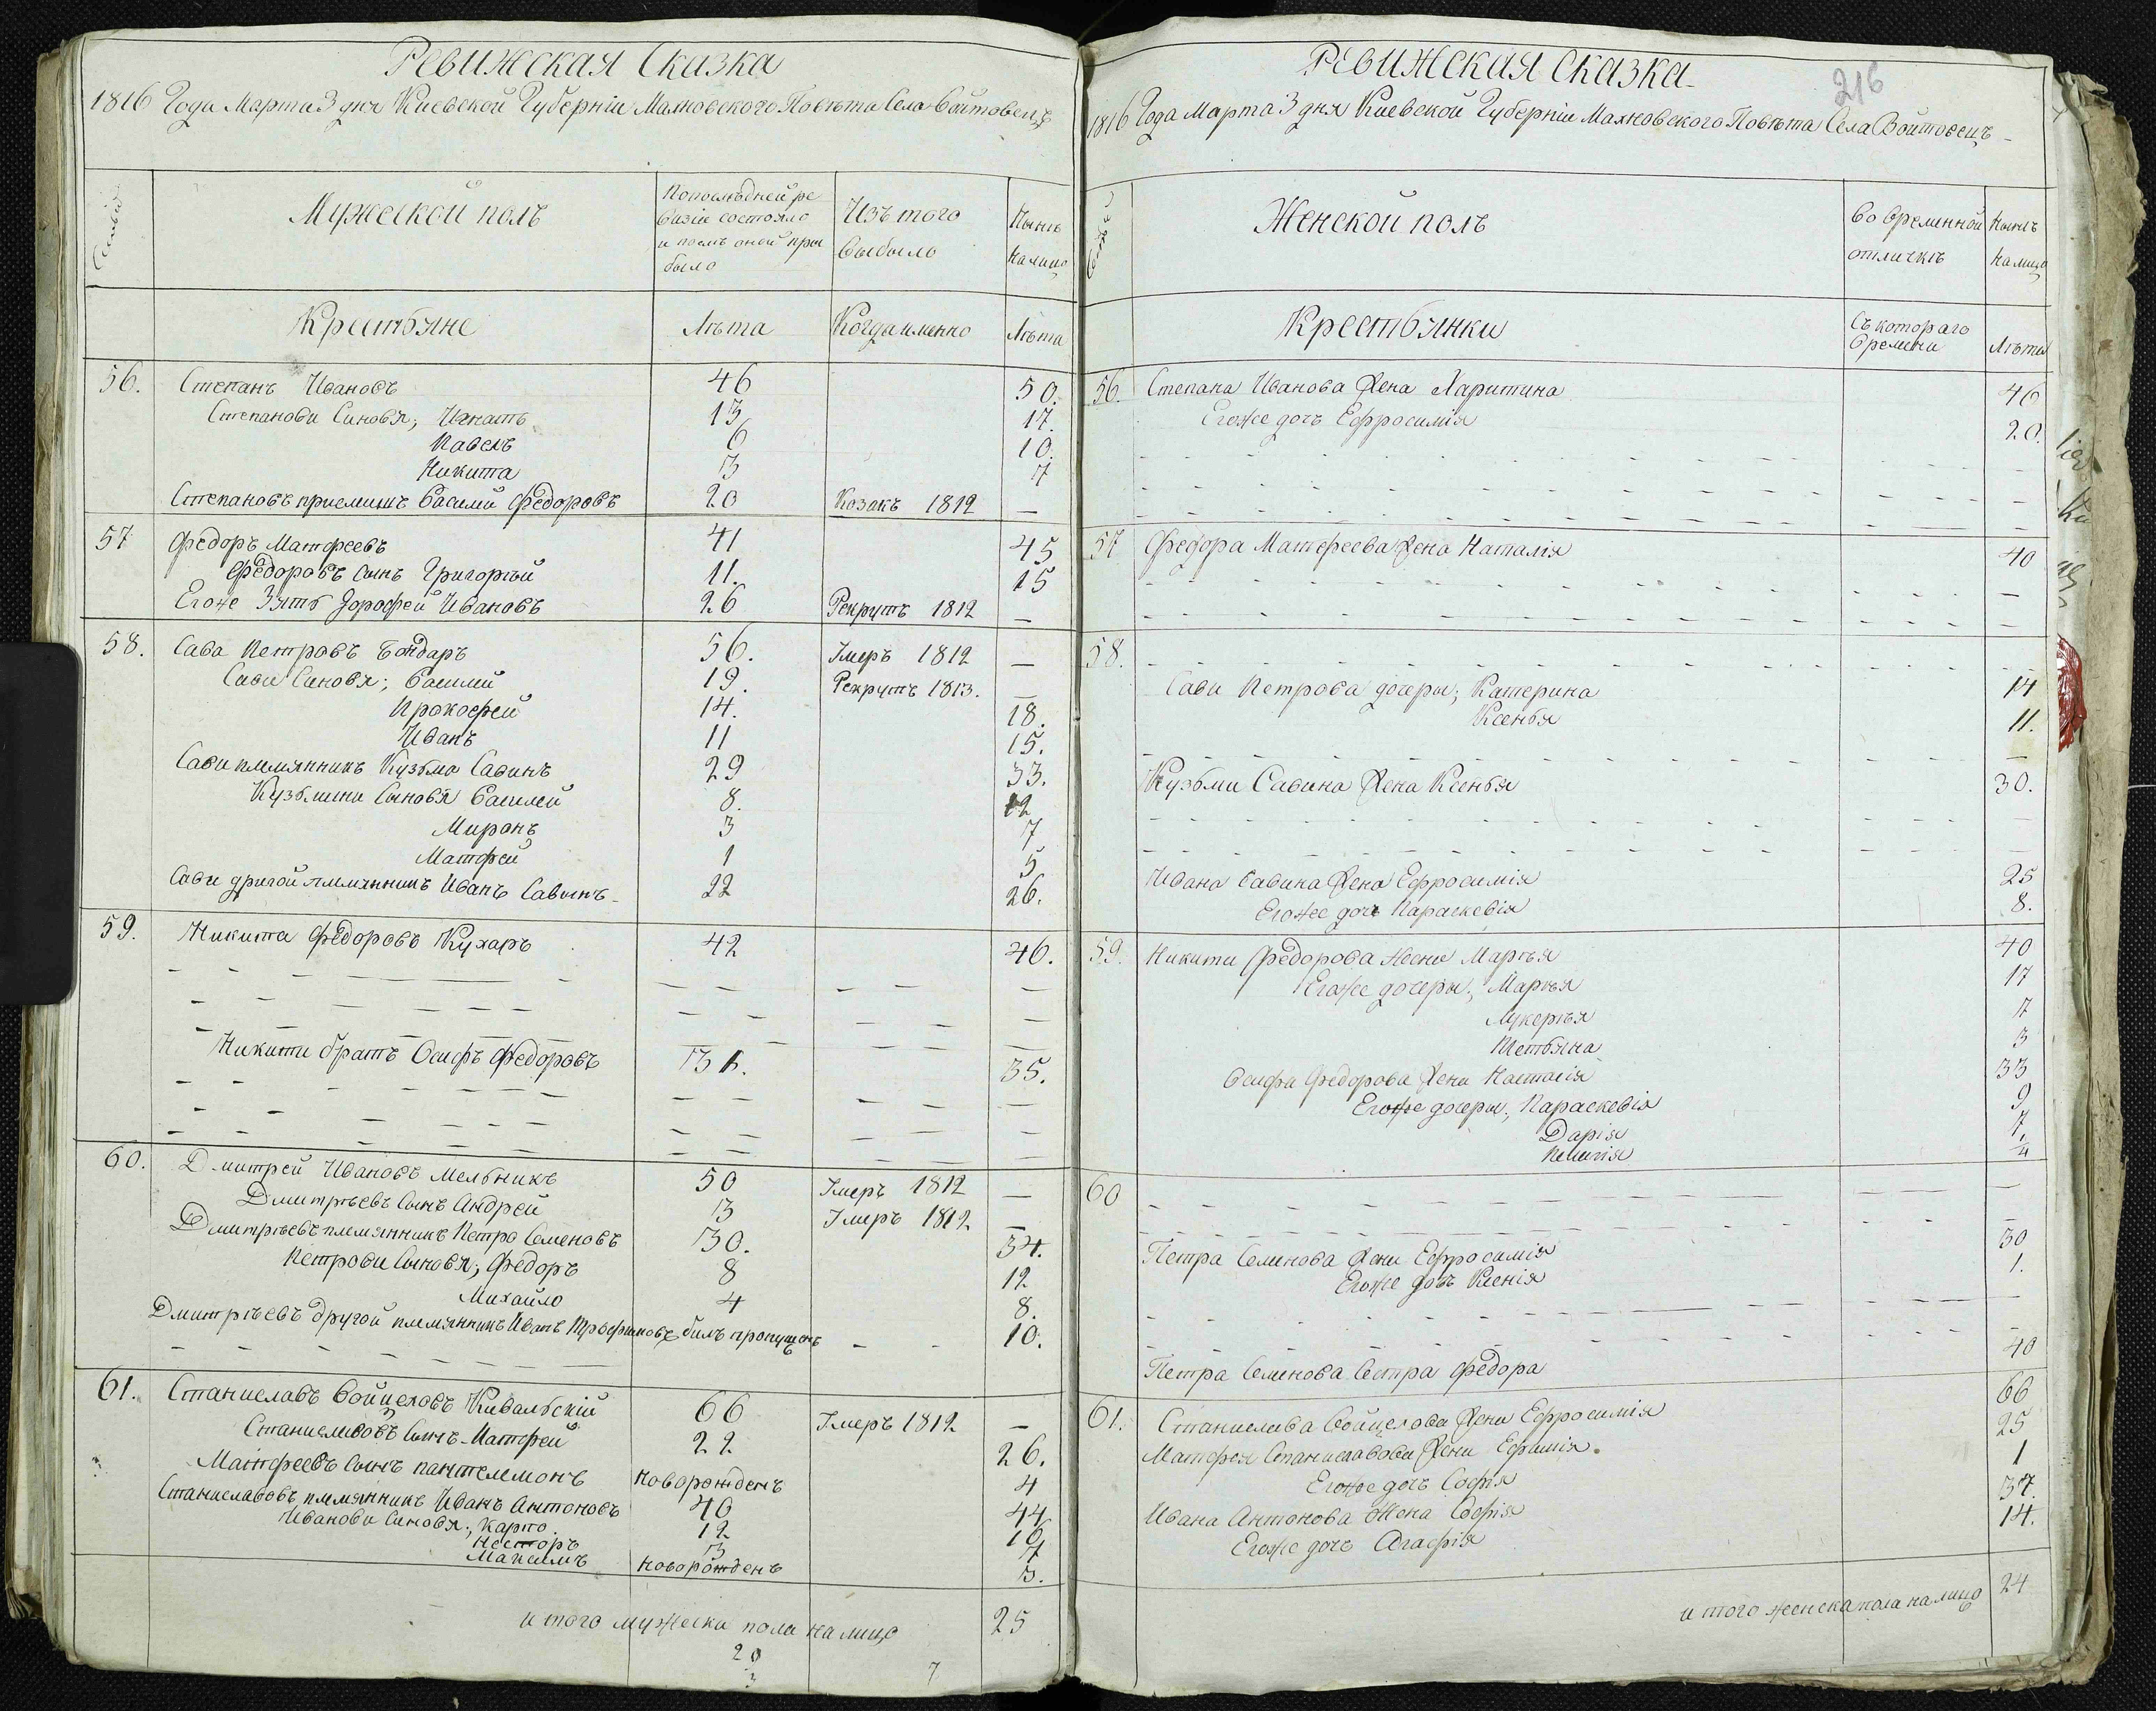 Ревижская Сказка
1816 Года Марта 3 дня Киевской Губерніи Махновского Повѣта Села Войтовецъ
Семьи
Мужеской полъ
По послѣдней ре
визіи состояло
и послѣ оной при
было
Изъ того
выбыло
Нынѣ
на лицо
Крестьяне
Лѣта
Когда именно
Лѣта
56. Степанъ Ивановъ 46 50.
Степанови Синовя; Игнатъ 13 17.
Павелъ 6 10.
Никита 3 7
Степановъ приемишъ Василий Федоровъ 20 Козакъ 1812 —
57 Федоръ Матфеевъ 41 45
Федоровъ сынъ Григорѣй 11. 15
Егоже Зять Дорофей Ивановъ 26 Рекрутъ 1812 —
58. Сава Петровъ Бондаръ 56. Умеръ 1812 —
Сави Синовя; Василий 19. Рекрутъ 1813. —
Прокофей 14. 18.
Иванъ 11 15.
Сави племянникъ Кузьма Савинъ 29 33.
Кузьмини Сыновя Василей 8. 12
Миронъ 3 7
Матфей 1 5
Сави другой племянникъ Иванъ Савинъ 22 26.
59. Никита Федоровъ Кухаръ 42 46.
Никити братъ Осифъ Федоровъ 31. 35.
60. Дмитрей Ивановъ Мельникъ 50 Умеръ 1812 —
Дмитрѣевъ Сынъ Андрей 13 Умеръ 1812 —
Дмитрѣевъ племянникъ Петро Семеновъ 30. 34.
Петрови Сыновя; Федоръ 8 12
Михайло 4 8.
Дмитрѣевъ другой племянникъ Иванъ Трофимовъ билъ пропущенъ - - 10.
61. Станиславъ Войцеховъ Кивальскій 66 Умеръ 1812 —
Станиславовъ Сынъ Матфей 22 26.
Матфеевъ Сынъ Пантелемонъ новорожденъ 4
Станиславовъ племянникъ Иванъ Антоновъ 40 44
Иванови Синовя; Карпо 12 16
Несторъ 3 7
Максимъ новорожденъ 3.
и того мужеска пола на лицо 25
20 7
3
Ревижская Сказка
216
1816 Года Марта 3 дня Киевской Губерніи Махновского Повѣта Села Войтовецъ
Семьи
Женской полъ
Во временной
отлучкѣ
Нынѣ
на лицо
Крестьянки
Съ котораго
времени
Лѣта
56. Степана Иванова Жена Харитина 46
Егоже дочь Ефросимія 20.
57 Федора Матфеева Жена Наталія 40
58.
Сави Петрова дочери; Катерина 14
Ксенья 11.
Кузьми Савина Жена Ксенья 30.
Ивана Савина Жена Ефросимія 25
Егоже дочь Параскевія 8.
59. Никити Федорова жена Марья 40
Егоже дочери; Марья 17
Лукерья 7
Тетьяна 3
Осифа Федорова Жена Настасія 33
Егоже дочери; Параскевія 9
Дарія 7.
60
Петра Семенова Жена Ефросимія 30
Егоже дочь Ксенія 1.
Петра Семенова Сестра Федора 40
61. Станислава Войцехова Жена Ефросимія 60
Матфея Станиславова Жена Ефимія. 25
Егоже дочь Софія 1
Ивана Антонова Жена Софія 37.
Егоже дочь Агафія 14.
и того женска пола на лицо 24